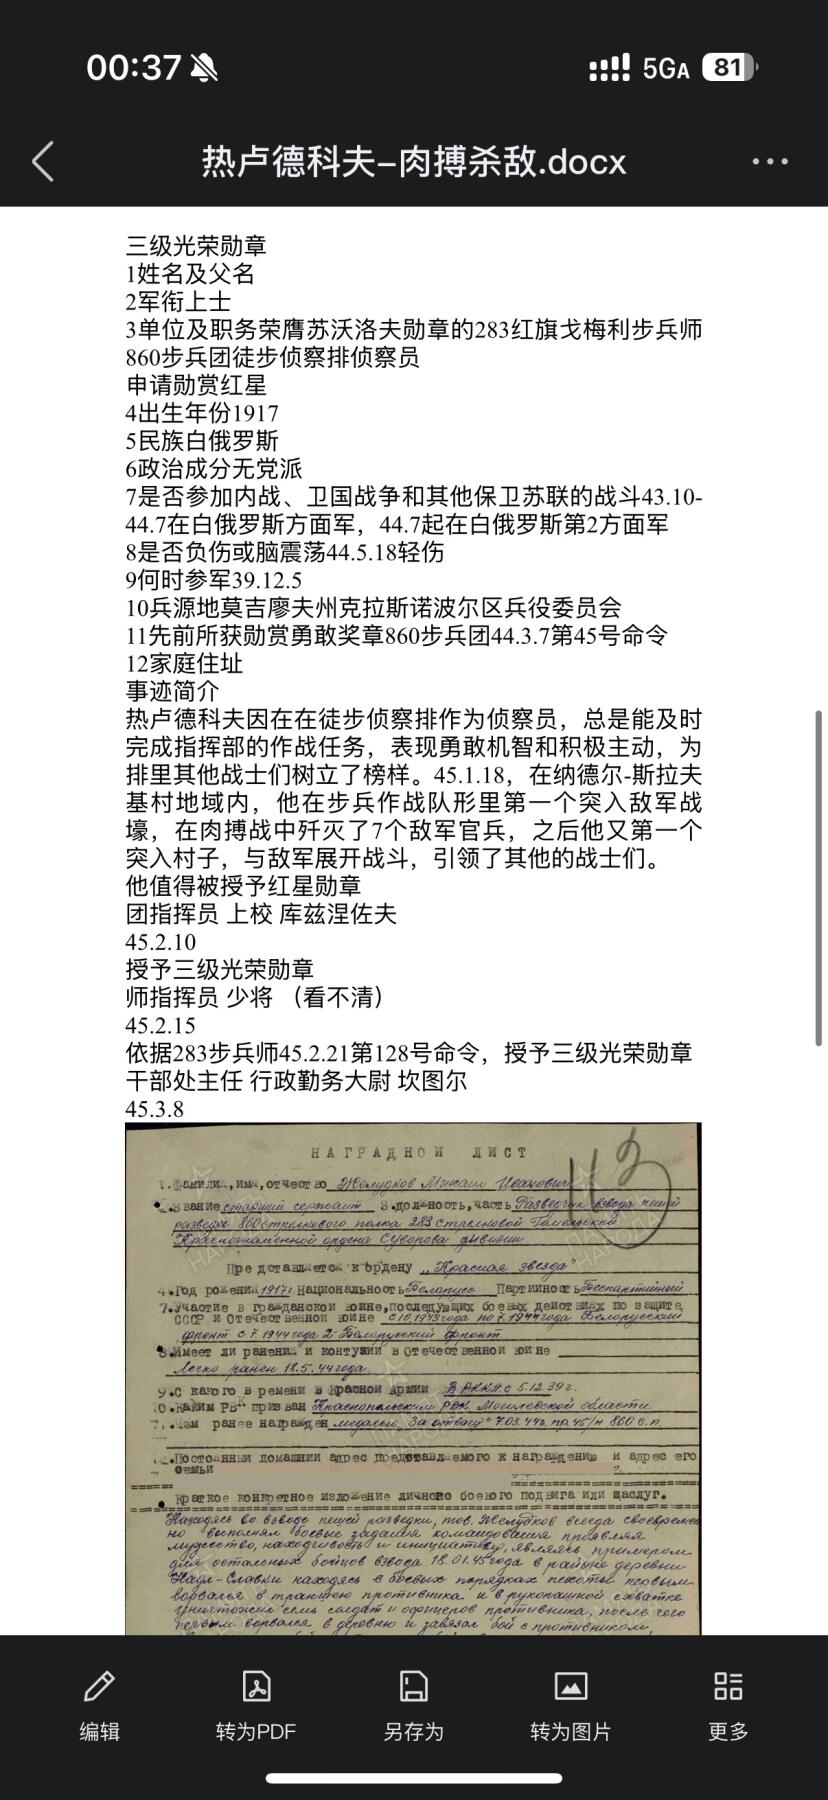 00:37
5GA 81
热卢德科夫-肉搏杀敌.docx
三级光荣勋章
1姓名及父名
2军衔上士
3单位及职务荣膺苏沃洛夫勋章的283红旗戈梅利步兵师
860步兵团徒步侦察排侦察员
申请勋赏红星
4出生年份1917
5民族白俄罗斯
6政治成分无党派
7是否参加内战、卫国战争和其他保卫苏联的战斗43.10-
44.7在白俄罗斯方面军，44.7起在白俄罗斯第2方面军
8是否负伤或脑震荡44.5.18轻伤
9何时参军39.12.5
10兵源地莫吉廖夫州克拉斯诺波尔区兵役委员会
11先前所获勋赏勇敢奖章860步兵团44.3.7第45号命令
12家庭住址
事迹简介
热卢德科夫因在在徒步侦察排作为侦察员，总是能及时
完成指挥部的作战任务，表现勇敢机智和积极主动，为
排里其他战士们树立了榜样。45.1.18，在纳德尔-斯拉夫
基村地域内，他在步兵作战队形里第一个突入敌军战
壕，在肉搏战中歼灭了7个敌军官兵，之后他又第一个
突入村子，与敌军展开战斗，引领了其他的战士们。
他值得被授予红星勋章
团指挥员 上校 库兹涅佐夫
45.2.10
授予三级光荣勋章
师指挥员 少将 （看不清）
45.2.15
依据283步兵师45.2.21第128号命令，授予三级光荣勋章
干部处主任 行政勤务大尉 坎图尔
45.3.8
НАГРАДНОЙ ЛИСТ
1. Фамилия, имя, отчество Желудков Михаил Иванович
2. Звание старший сержант 3. должность, часть Разведчик взвода пешей
разведки 860 стрелкового полка 283 стрелковой Гомельской
Краснознаменной ордена Суворова дивизии
Представляется к ордену „Красная звезда"
4. Год рождения 1917г. Национальность Белорусс Партийность Беспартийный
7. Участие в гражданской войне, последующих боевых действиях по защите
СССР и Отечественной войне с 10.1943 года по 7.1944 года Белорусский
фронт с 7.1944 года 2-Белорусский фронт
8. Имеет ли ранения и контузии в Отечественной войне
Легко ранен 18.5.44 года.
9. С какого времени в Красной Армии В РККА с 5.12.39г.
10. Каким РВК призван Краснопольским РВК Могилевской области
11. Чем ранее награжден медалью „За отвагу" 7.03.44г. пр. 45/н 860 с.п.
12. Постоянный домашний адрес представляемого к награждению и адрес его
семьи
Краткое конкретное изложение личного боевого подвига или заслуг.
Находясь во взводе пешей разведки, тов. Желудков всегда своевремен-
но выполнял боевые задания командования проявляя
мужество, находчивость и инициативу, являясь примером
для остальных бойцов взвода. 18.01.45 года в районе деревни
Надл-Славки находясь в боевых порядках пехоты первым
ворвался в траншею противника и в рукопашной схватке
уничтожил семь солдат и офицеров противника, после чего
первым ворвался в деревню и завязал бой с противником,
编辑
转为PDF
另存为
转为图片
更多